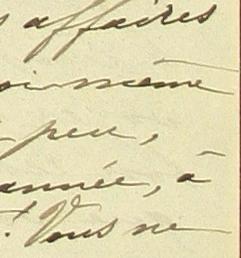 affaires
même
peu,
année, à
! Vous ne